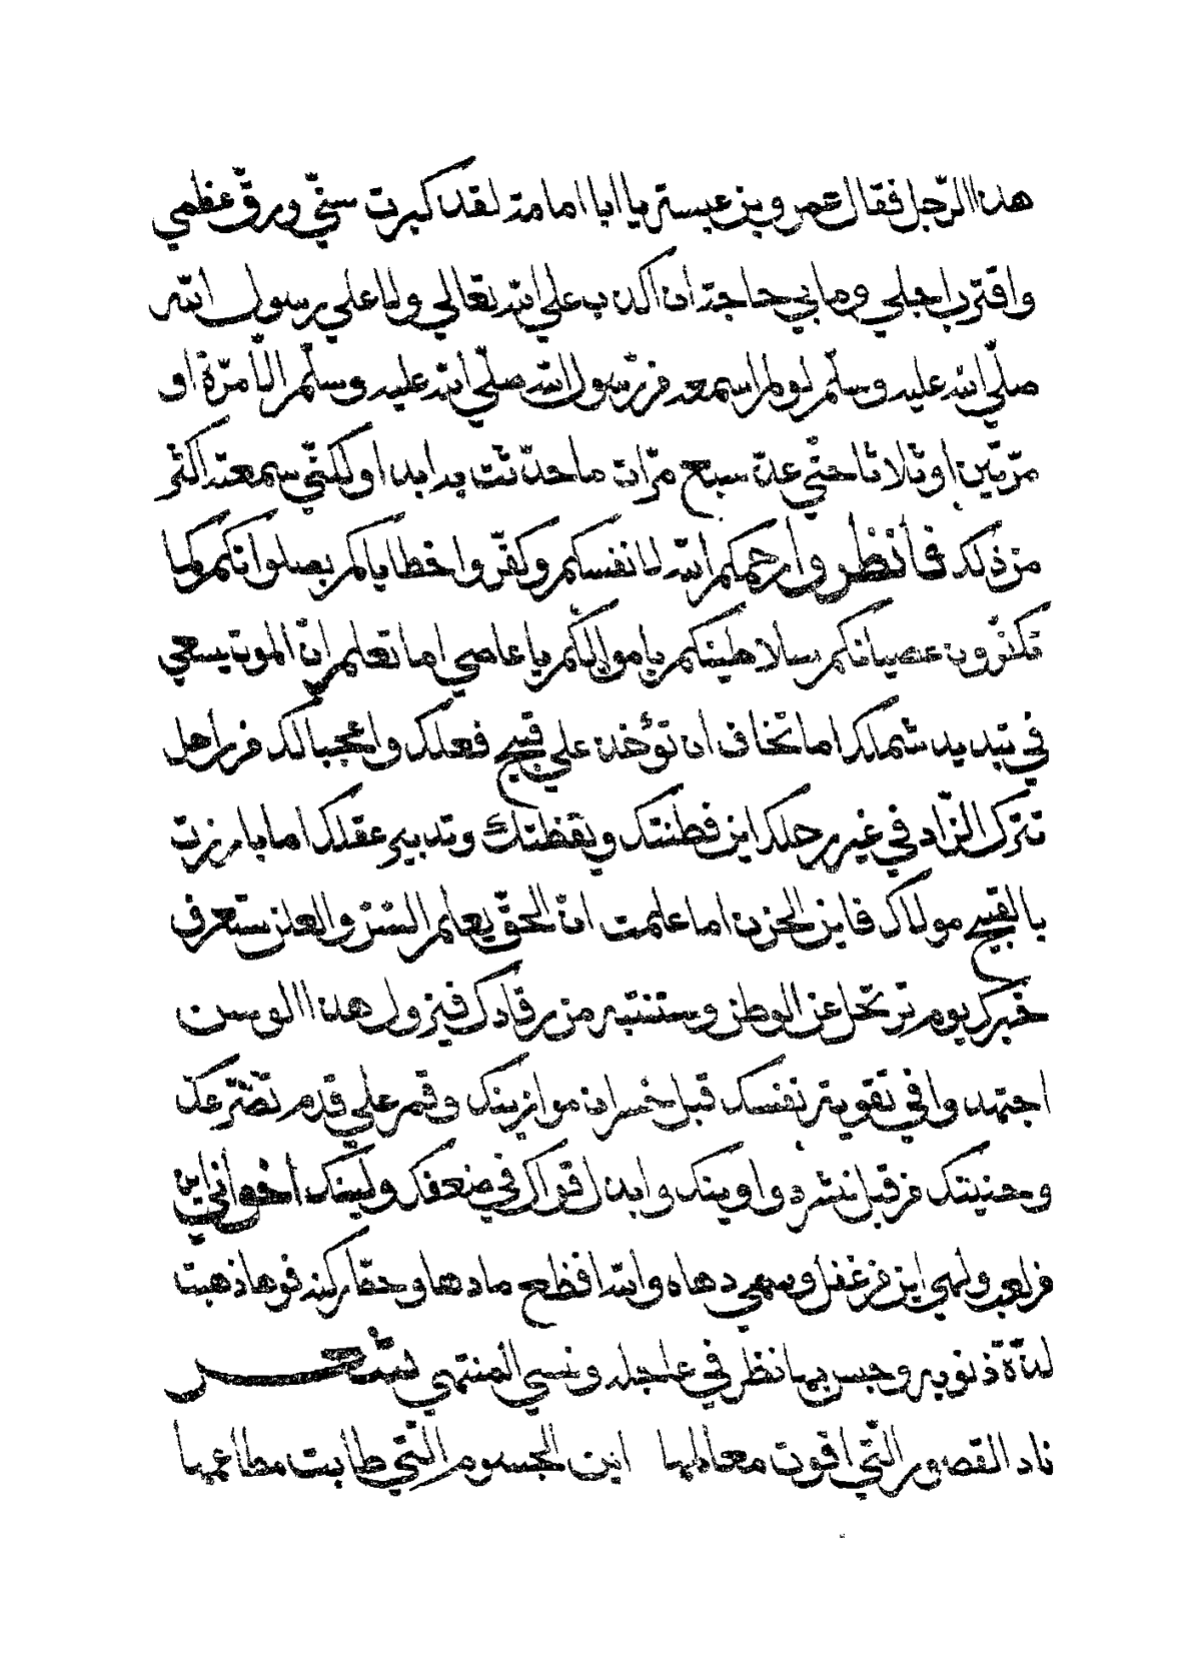 هذا الرّجل فقال عمرو بن عبسة يا ابا امامة لقد كبرت سنّي ورقّ عظمي
واقترب اجلي وما بي حاجة ان اكذب على الله تعالي ولا علي رسول الله
صلّي الله عليه وسلّم لو لم اسمعه من رّسول الله صلّي الله عليه وسلّم الّا مرّة او
مرّتين او ثلاثا حتّي عدّ سبع مرّات ما حدّثت به ابدا ولكنّي سمعته اكثر
من ذلك فانظروا رحمكم الله لانفسكم وكفّروا خطاياكم بصلواتكم وكما
تكثرون عصيانكم سلاطينكم يا موالكم يا عاصي اما تعلم انّ الموت يسعي
في تبديد شملك اما تخاف ان تؤخذ علي قبيح فعلك واعجبا لك من راحل
تترك الزّاد في غير رحلك اين فطنتك ويقظتك وتدبير عقلك اما بارزت
بالقبيح مولاك فاين الحزن اما علمت انّ الحقّ يعلم السّرّ والعلن ستعرف
خبرك يوم ترتحل عن الوطن وستنتبه من رقادك فيزول هذا الوسن
اجتهد وا في تقوية نفسك قبل خسران موازينك وقم علي قدم تضّرّعك
وحنيتك من قبل نشر دواوينك وابذل قواك في ضعفك ولينك اخواني اين
من لعب ولهي اين من غفل وسهي دهاه والله افظع ما دهاو حقّا ركنه فوها ذهبت
لذّة ذنوبه وحبس بها نظر في عاجله ونسي المنتهي شعر
ناد القصور الّتي اقوت معالمها اين الجسوم الّتي طابت مطاعمها